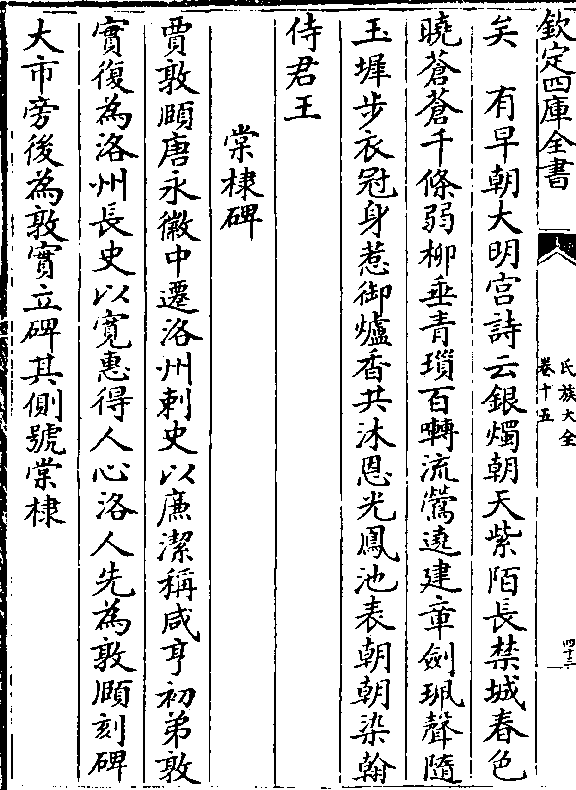 欽定四庫全書
氏族大全
卷十五
四十三
矣　有早朝大明宫詩云銀燭朝天紫陌長禁城春色
曉蒼蒼千條弱柳垂青瑣百囀流鶯遶建章劍珮聲隨
玉墀步衣冠身惹御爐香共沐恩光鳳池表朝朝染翰
侍君王
棠棣碑
賈敦頤唐永徽中遷洛州刺史以廉潔稱咸亨初弟敦
實復為洛州長史以寛惠得人心洛人先為敦頤刻碑
大市旁後為敦實立碑其側號棠棣